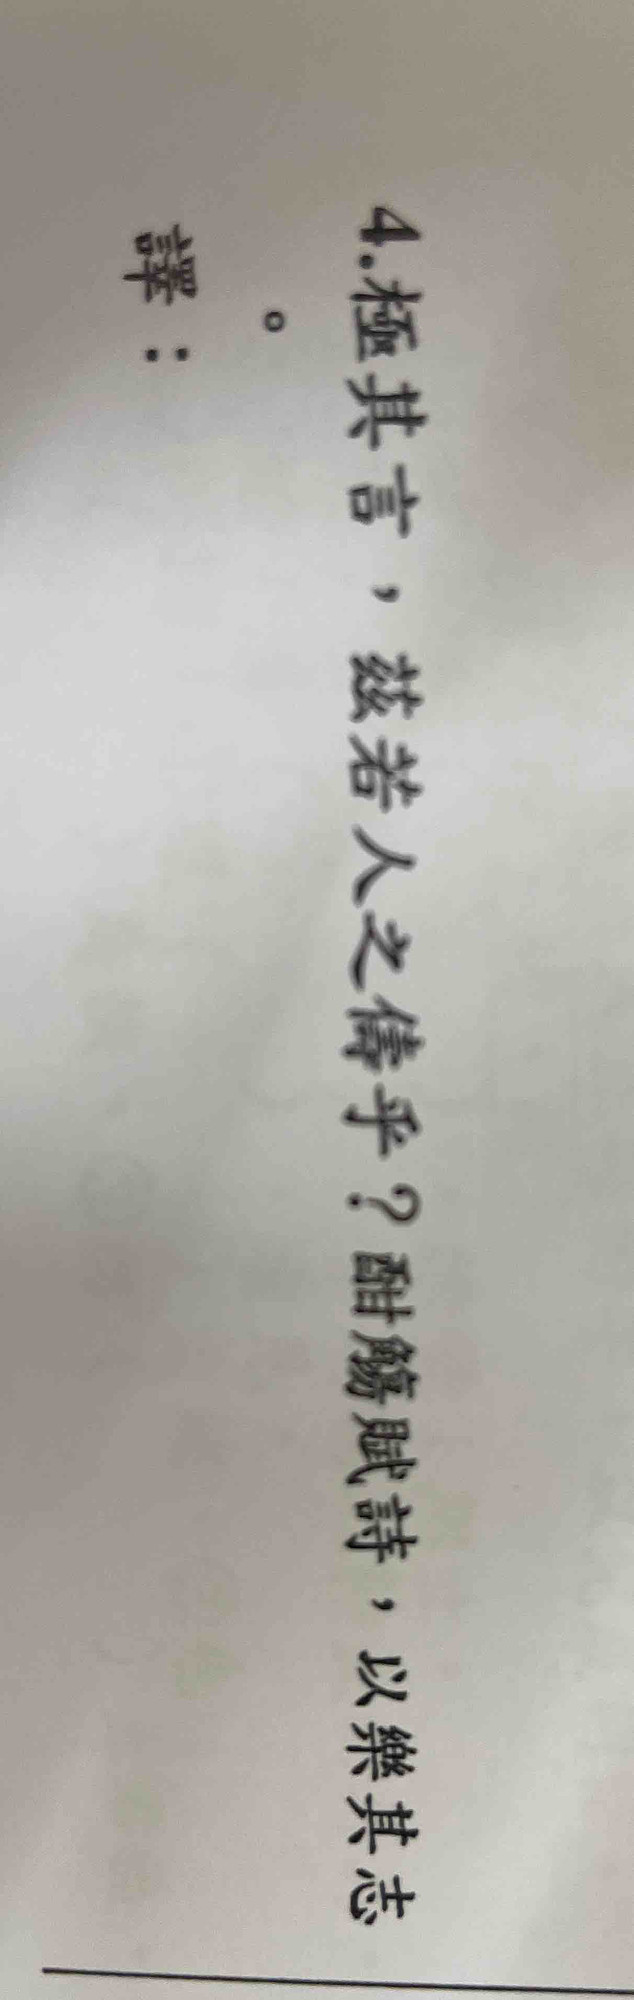 4.極其言，茲若人之儔乎？酣觴賦詩，以樂其志
。
譯：